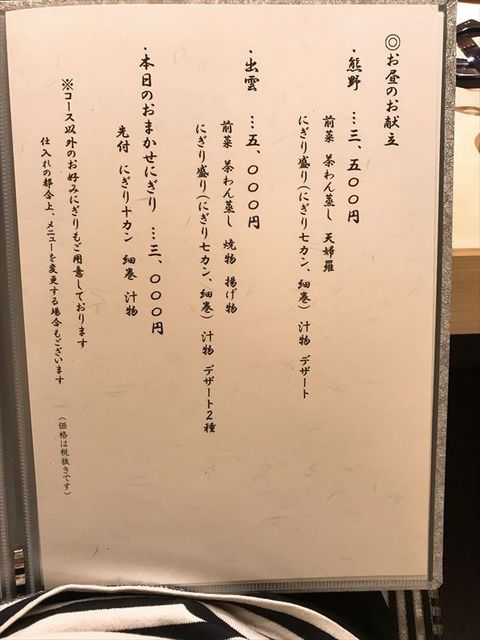 ◎お昼のお献立
・熊野 …三、五〇〇円
前菜 茶わん蒸し 天婦羅
にぎり盛り(にぎり七カン、細巻) 汁物 デザート
・出雲 …五、〇〇〇円
前菜 茶わん蒸し 焼物 揚げ物
にぎり盛り(にぎり七カン、細巻) 汁物 デザート2種
・本日のおまかせにぎり …三、〇〇〇円
先付 にぎり十カン 細巻 汁物
※コース以外のお好みにぎりもご用意しております
仕入れの都合上、メニューを変更する場合もございます
(価格は税抜きです)